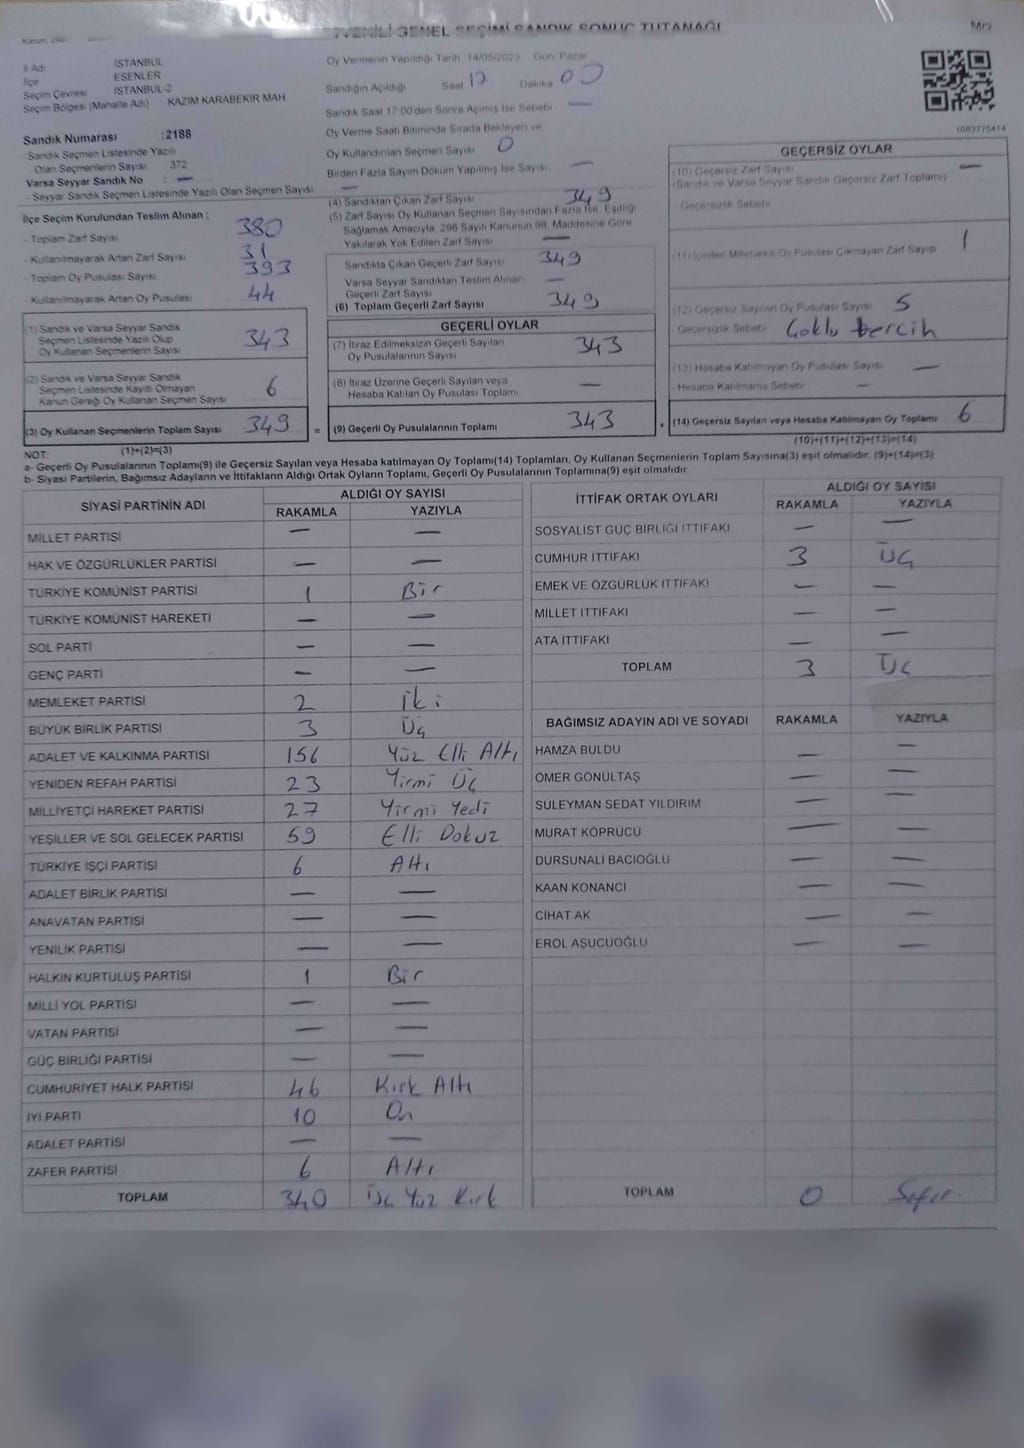 GENEL SEÇİMİ SANDIK SONUÇ TUTANAĞI
İl Adı İSTANBUL
İlçe ESENLER
Seçim Çevresi İSTANBUL-2
Seçim Bölgesi (Mahalle Adı) KAZIM KARABEKİR MAH
Sandık Numarası :2188
- Sandık Seçmen Listesinde Yazılı
Olan Seçmenlerin Sayısı 372
Varsa Seyyar Sandık No : —
- Seyyar Sandık Seçmen Listesinde Yazılı Olan Seçmen Sayısı —
İlçe Seçim Kurulundan Teslim Alınan :
- Toplam Zarf Sayısı 380
- Kullanılmayarak Artan Zarf Sayısı 31
- Toplam Oy Pusulası Sayısı 393
- Kullanılmayarak Artan Oy Pusulası 44
(1) Sandık ve Varsa Seyyar Sandık
Seçmen Listesinde Yazılı Olup
Oy Kullanan Seçmenlerin Sayısı 343
(2) Sandık ve Varsa Seyyar Sandık
Seçmen Listesinde Kayıtlı Olmayan
Kanun Gereği Oy Kullanan Seçmen Sayısı 6
(3) Oy Kullanan Seçmenlerin Toplam Sayısı 349
(1)+(2)=(3)
Oy Vermenin Yapıldığı Tarih 14/05/2023 Gün: Pazar
Sandığın Açıldığı Saat 17 Dakika 00
Sandık Saat 17:00'den Sonra Açılmış İse Sebebi —
Oy Verme Saati Bitiminde Sırada Bekleyen ve
Oy Kullandırılan Seçmen Sayısı 0
Birden Fazla Sayım Döküm Yapılmış İse Sayısı —
(4) Sandıktan Çıkan Zarf Sayısı 349
(5) Zarf Sayısı Oy Kullanan Seçmen Sayısından Fazla İse, Eşitliği
Sağlamak Amacıyla, 298 Sayılı Kanunun 98. Maddesine Göre
Yakılarak Yok Edilen Zarf Sayısı —
Sandıkta Çıkan Geçerli Zarf Sayısı 349
Varsa Seyyar Sandıktan Teslim Alınan
Geçerli Zarf Sayısı —
(6) Toplam Geçerli Zarf Sayısı 349
GEÇERLİ OYLAR
(7) İtiraz Edilmeksizin Geçerli Sayılan
Oy Pusulalarının Sayısı 343
(8) İtiraz Üzerine Geçerli Sayılan veya
Hesaba Katılan Oy Pusulası Toplamı —
= (9) Geçerli Oy Pusulalarının Toplamı 343
1083775414
GEÇERSİZ OYLAR
(10) Geçersiz Zarf Sayısı —
(Sandık ve Varsa Seyyar Sandık Geçersiz Zarf Toplamı)
- Geçersizlik Sebebi
(11) İçinden Milletvekili Oy Pusulası Çıkmayan Zarf Sayısı 1
(12) Geçersiz Sayılan Oy Pusulası Sayısı 5
- Geçersizlik Sebebi Çoklu tercih
(13) Hesaba Katılmayan Oy Pusulası Sayısı —
- Hesaba Katılmama Sebebi —
+ (14) Geçersiz Sayılan veya Hesaba Katılmayan Oy Toplamı 6
(10)+(11)+(12)+(13)=(14)
NOT:
a- Geçerli Oy Pusulalarının Toplamı(9) ile Geçersiz Sayılan veya Hesaba katılmayan Oy Toplamı(14) Toplamları, Oy Kullanan Seçmenlerin Toplam Sayısına(3) eşit olmalıdır. (9)+(14)=(3)
b- Siyasi Partilerin, Bağımsız Adayların ve İttifakların Aldığı Ortak Oyların Toplamı, Geçerli Oy Pusulalarının Toplamına(9) eşit olmalıdır
SİYASİ PARTİNİN ADI ALDIĞI OY SAYISI
RAKAMLA YAZIYLA
MİLLET PARTİSİ — —
HAK VE ÖZGÜRLÜKLER PARTİSİ — —
TÜRKİYE KOMÜNİST PARTİSİ 1 Bir
TÜRKİYE KOMÜNİST HAREKETİ — —
SOL PARTİ — —
GENÇ PARTİ — —
MEMLEKET PARTİSİ 2 İki
BÜYÜK BİRLİK PARTİSİ 3 Üç
ADALET VE KALKINMA PARTİSİ 156 Yüz Elli Altı
YENİDEN REFAH PARTİSİ 23 Yirmi Üç
MİLLİYETÇİ HAREKET PARTİSİ 27 Yirmi Yedi
YEŞİLLER VE SOL GELECEK PARTİSİ 59 Elli Dokuz
TÜRKİYE İŞÇİ PARTİSİ 6 Altı
ADALET BİRLİK PARTİSİ — —
ANAVATAN PARTİSİ — —
YENİLİK PARTİSİ — —
HALKIN KURTULUŞ PARTİSİ 1 Bir
MİLLİ YOL PARTİSİ — —
VATAN PARTİSİ — —
GÜÇ BİRLİĞİ PARTİSİ — —
CUMHURİYET HALK PARTİSİ 46 Kırk Altı
İYİ PARTİ 10 On
ADALET PARTİSİ — —
ZAFER PARTİSİ 6 Altı
TOPLAM 340 Üç Yüz Kırk
İTTİFAK ORTAK OYLARI ALDIĞI OY SAYISI
RAKAMLA YAZIYLA
SOSYALİST GÜÇ BİRLİĞİ İTTİFAKI — —
CUMHUR İTTİFAKI 3 Üç
EMEK VE ÖZGÜRLÜK İTTİFAKI — —
MİLLET İTTİFAKI — —
ATA İTTİFAKI — —
TOPLAM 3 Üç
BAĞIMSIZ ADAYIN ADI VE SOYADI RAKAMLA YAZIYLA
HAMZA BULDU — —
ÖMER GÖNÜLTAŞ — —
SÜLEYMAN SEDAT YILDIRIM — —
MURAT KÖPRÜCÜ — —
DURSUNALİ BACIOĞLU — —
KAAN KONANCİ — —
CİHAT AK — —
EROL AŞUCUOĞLU — —
TOPLAM 0 Sıfır